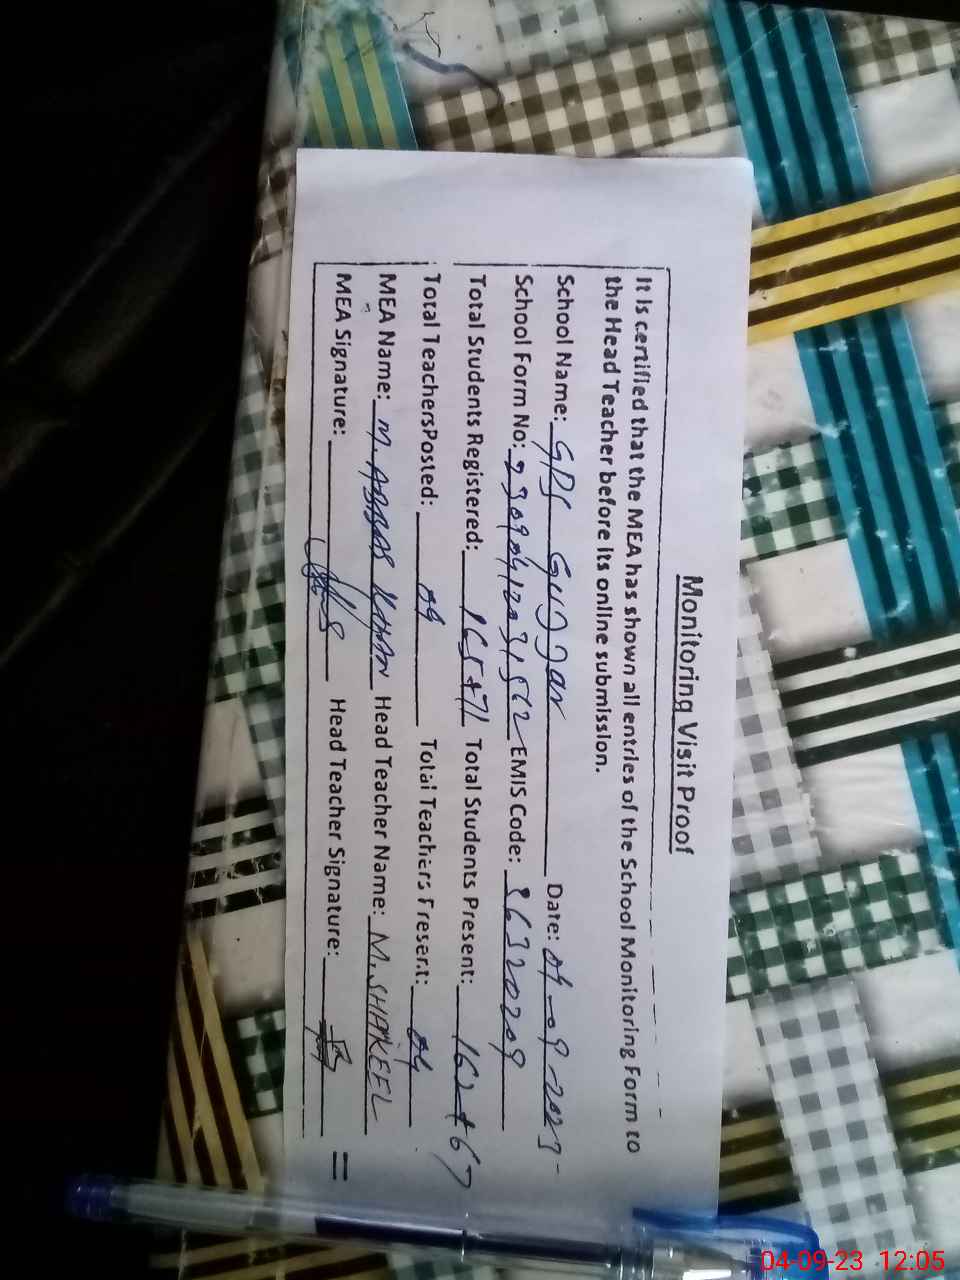 Monitoring Visit Proof
It is certified that the MEA has shown all entries of the School Monitoring Form to
the Head Teacher before its online submission.
School Name: GPS Gujjar Date: 04-09-2023
School Form No: EMIS Code: 86320209
Total Students Registered: 165+71 Total Students Present: 162+67
Total TeachersPosted: 04 Total Teachers Present: 04
MEA Name: M. ABBAS KHAN Head Teacher Name: M. SHAKEEL
MEA Signature: Head Teacher Signature:
04-09-23 12:05